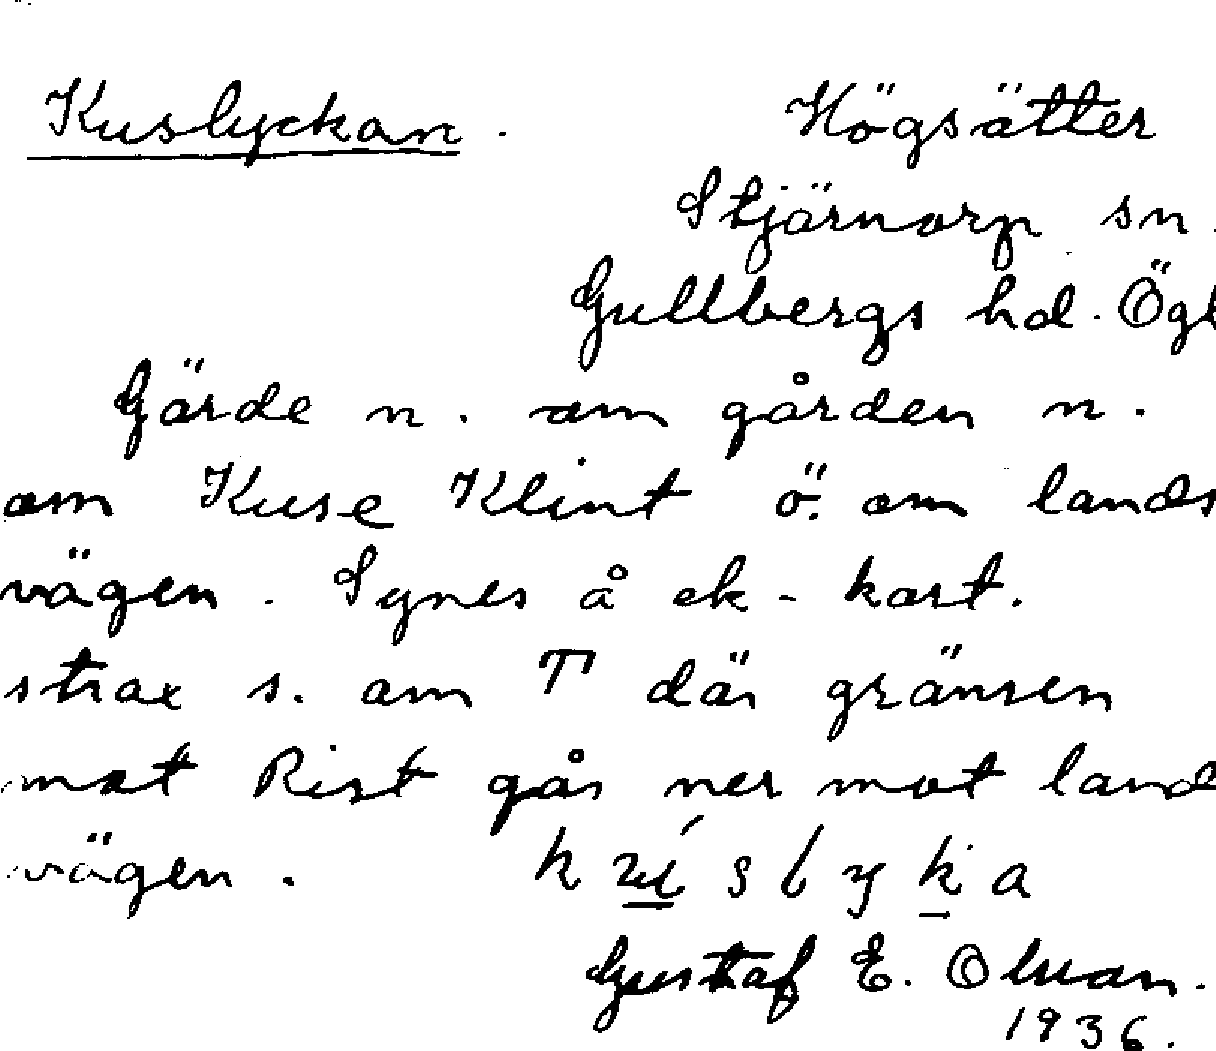 Kuslyckan. Högsätter
Stjärnorp sn.
Gullbergs hd. Ögl
Gärde n. om gården n.
om Kuse Klint ö. om lands
vägen. Synes å ek-kart.
strax s. om T där gränsen
mot Rist går ner mot land
vägen. kuslyka
Gustaf E. Olsson.
1936.